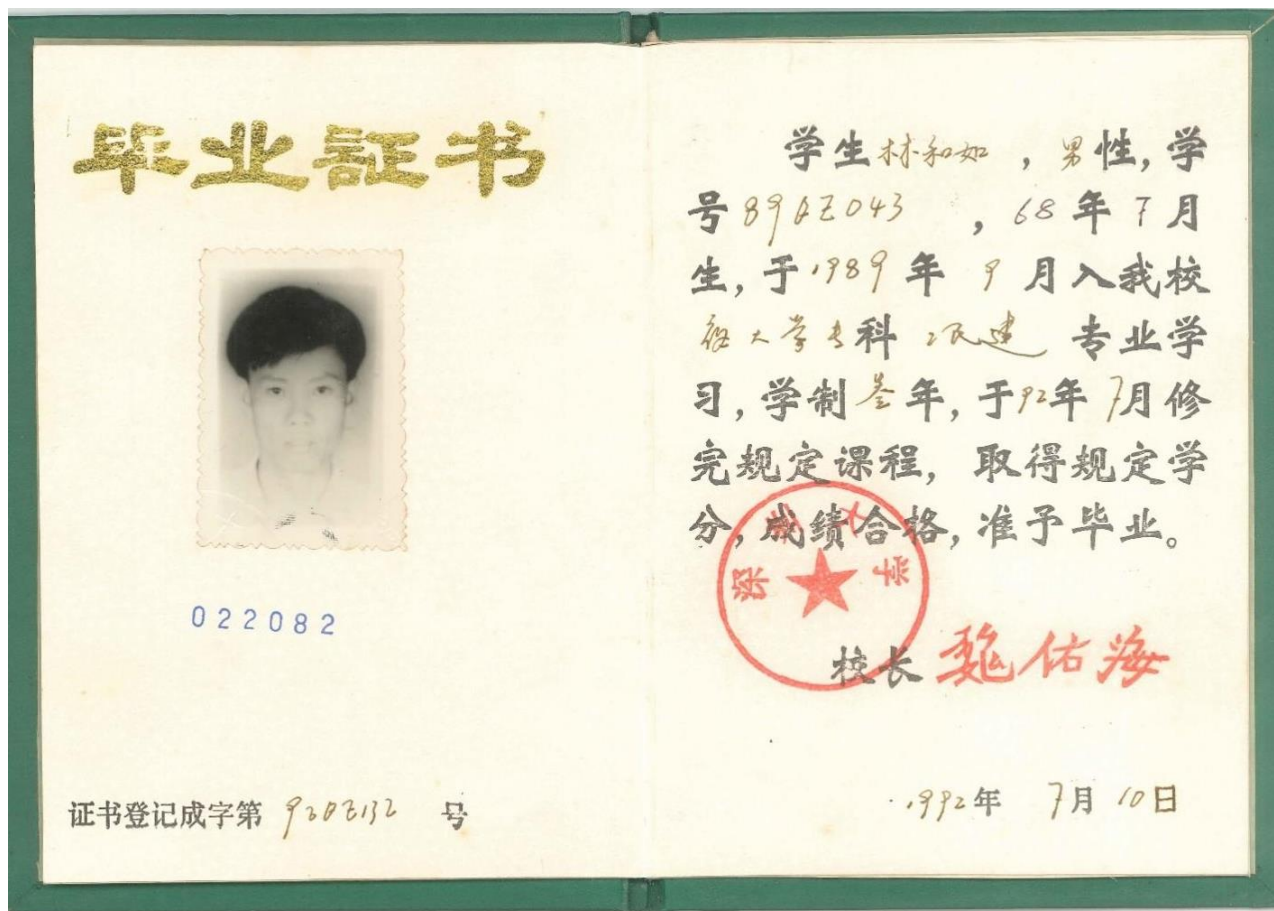 毕业証书
022082
证书登记成字第 号
学生林和如，男性，学
号89 043，68年7月
生，于1989年9月入我校
大学专科 民建 专业学
习，学制叁年，于92年7月修
完规定课程，取得规定学
分，成绩合格，准予毕业。
深圳大学
校长 魏佑海
1992年 7月 10日